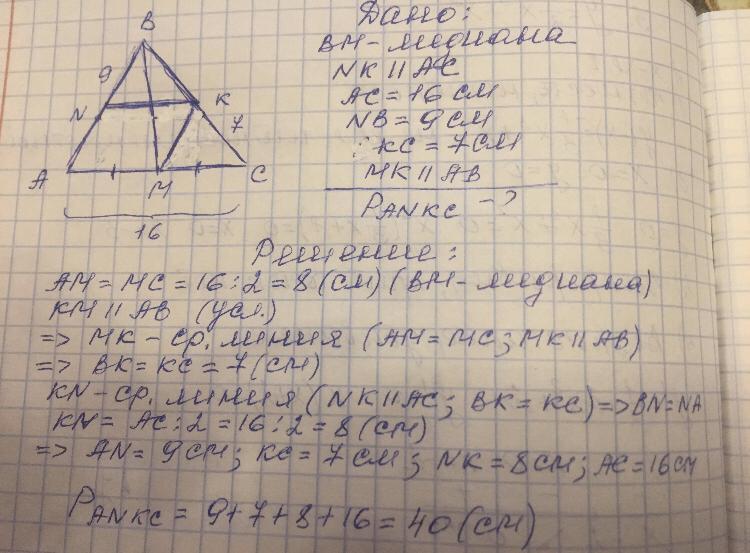 B
9
N
K
7
A
M
C
16
Дано:
BM - медиана
NK || AC
AC = 16 см
NB = 9 см
KC = 7 см
MK || AB
PANKC - ?
Решение:
AM = MC = 16 : 2 = 8 (см) (BM - медиана)
KM || AB (усл.)
=> MK - ср. линия (AM = MC; MK || AB)
=> BK = KC = 7 (см)
KN - ср. линия (NK || AC; BK = KC) => BN = NA
KN = AC : 2 = 16 : 2 = 8 (см)
=> AN = 9 см; KC = 7 см; NK = 8 см; AC = 16 см
PANKC = 9 + 7 + 8 + 16 = 40 (см)